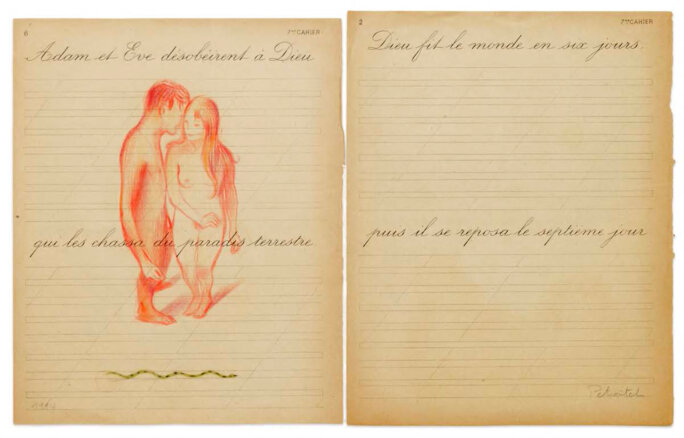 6
7me CAHIER
Adam et Eve désobéirent à Dieu
qui les chassa du paradis terrestre
2
7me CAHIER
Dieu fit le monde en six jours.
puis il se reposa le septième jour